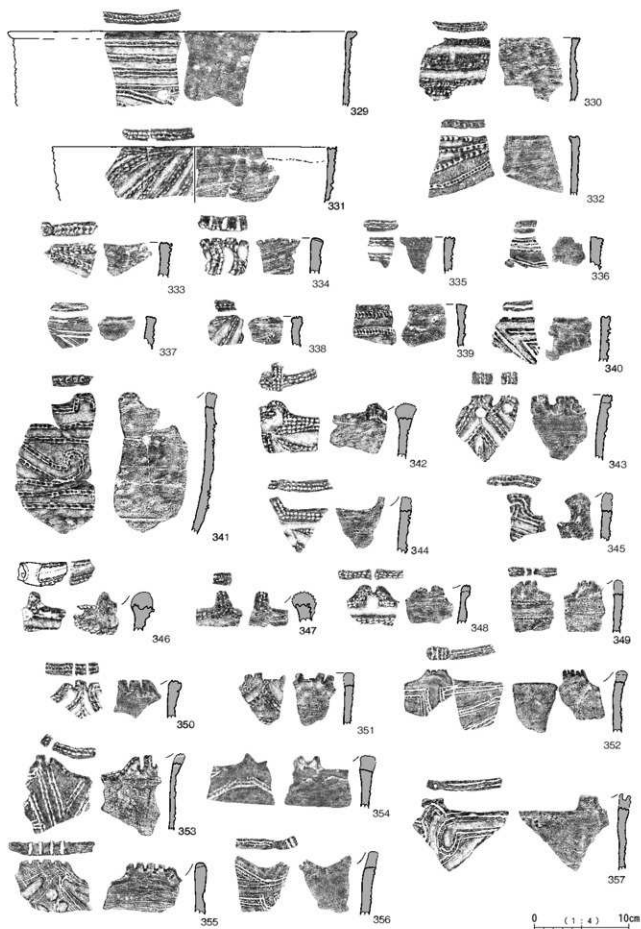 329
330
331
332
333
334
335
336
337
338
339
340
341
342
343
344
345
346
347
348
349
350
351
352
353
354
355
356
357
0 (1:4) 10cm